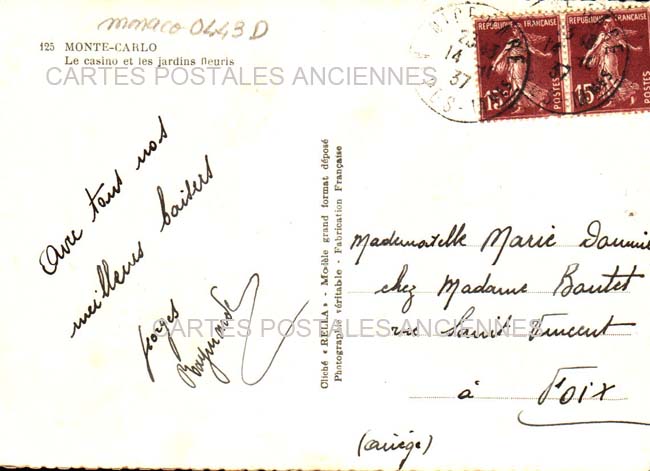 monaco 0443D
125 MONTE-CARLO
Le casino et les jardins fleuris
CARTES POSTALES ANCIENNES
NICE
14
37
REPUBLIQUE FRANÇAISE
15
POSTES
REPUBLIQUE FRANÇAISE
15
POSTES
Avec tous nos
meilleurs baisers
Georges
Raymonde
Cliché « RELLA » - Modèle grand format déposé
Photographie véritable - Fabrication Française
Mademoiselle Marie
chez Madame Boutet
rue Saint Vincent
à Foix
(Ariège)
CARTES POSTALES ANCIENNES